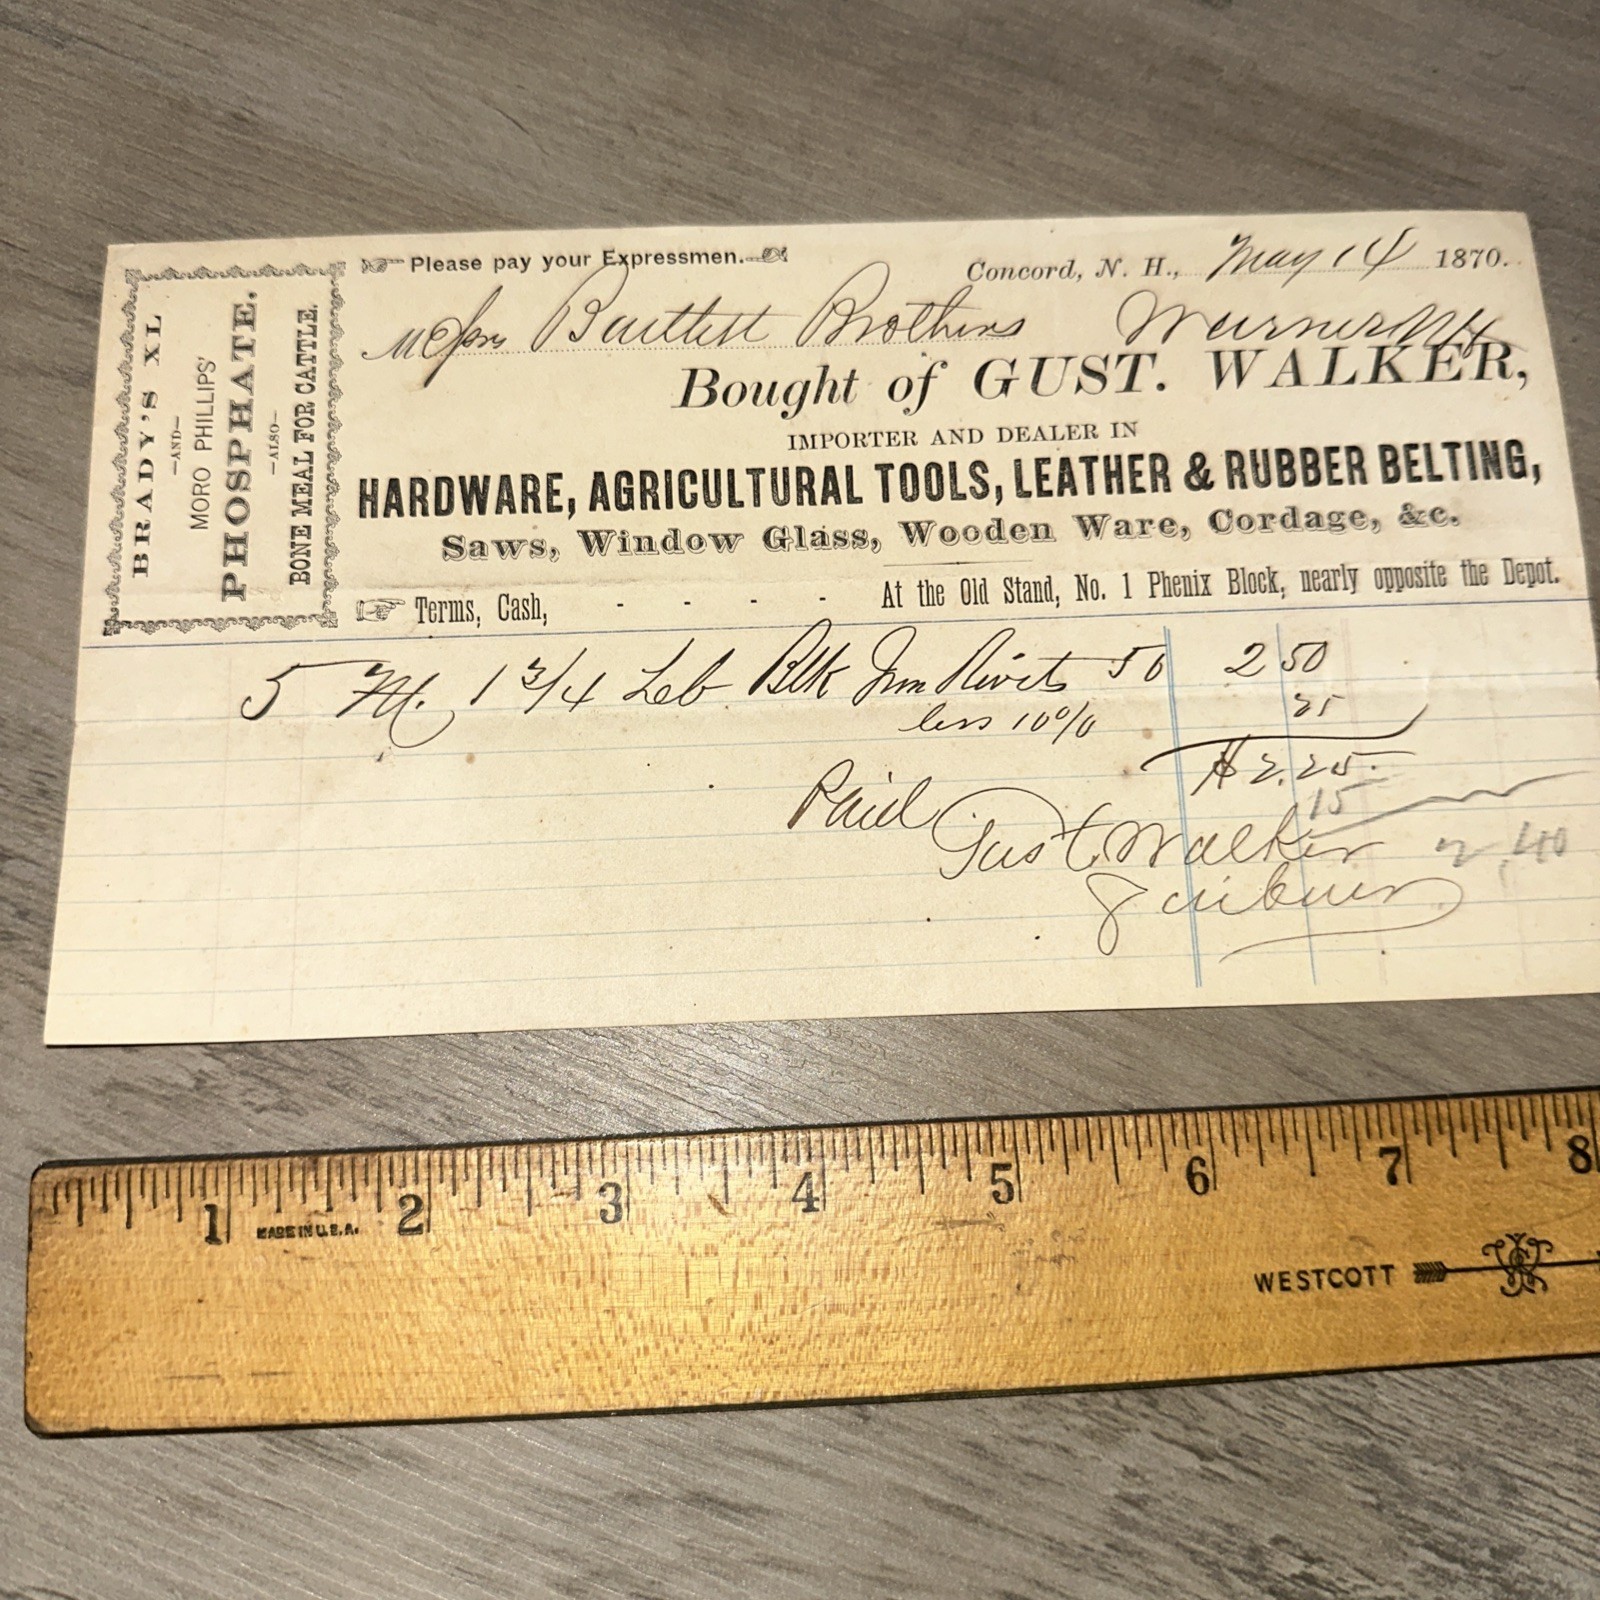 BRADY'S XL
—AND—
MORO PHILLIPS'
PHOSPHATE.
—ALSO—
BONE MEAL FOR CATTLE.
Please pay your Expressmen.
Concord, N. H., May 14 1870.
Messrs Bartlett Brothers Warner NH
Bought of GUST. WALKER,
IMPORTER AND DEALER IN
HARDWARE, AGRICULTURAL TOOLS, LEATHER & RUBBER BELTING,
Saws, Window Glass, Wooden Ware, Cordage, &c.
Terms, Cash, - - - - At the Old Stand, No. 1 Phenix Block, nearly opposite the Depot.
5 M. 1 3/4 Lb Blk Iron Rivets 50 2 50
less 10% 25
$2.25
15
Paid
Gust. Walker 2.40
1 2 3 4 5 6 7 8
MADE IN U.S.A.
WESTCOTT